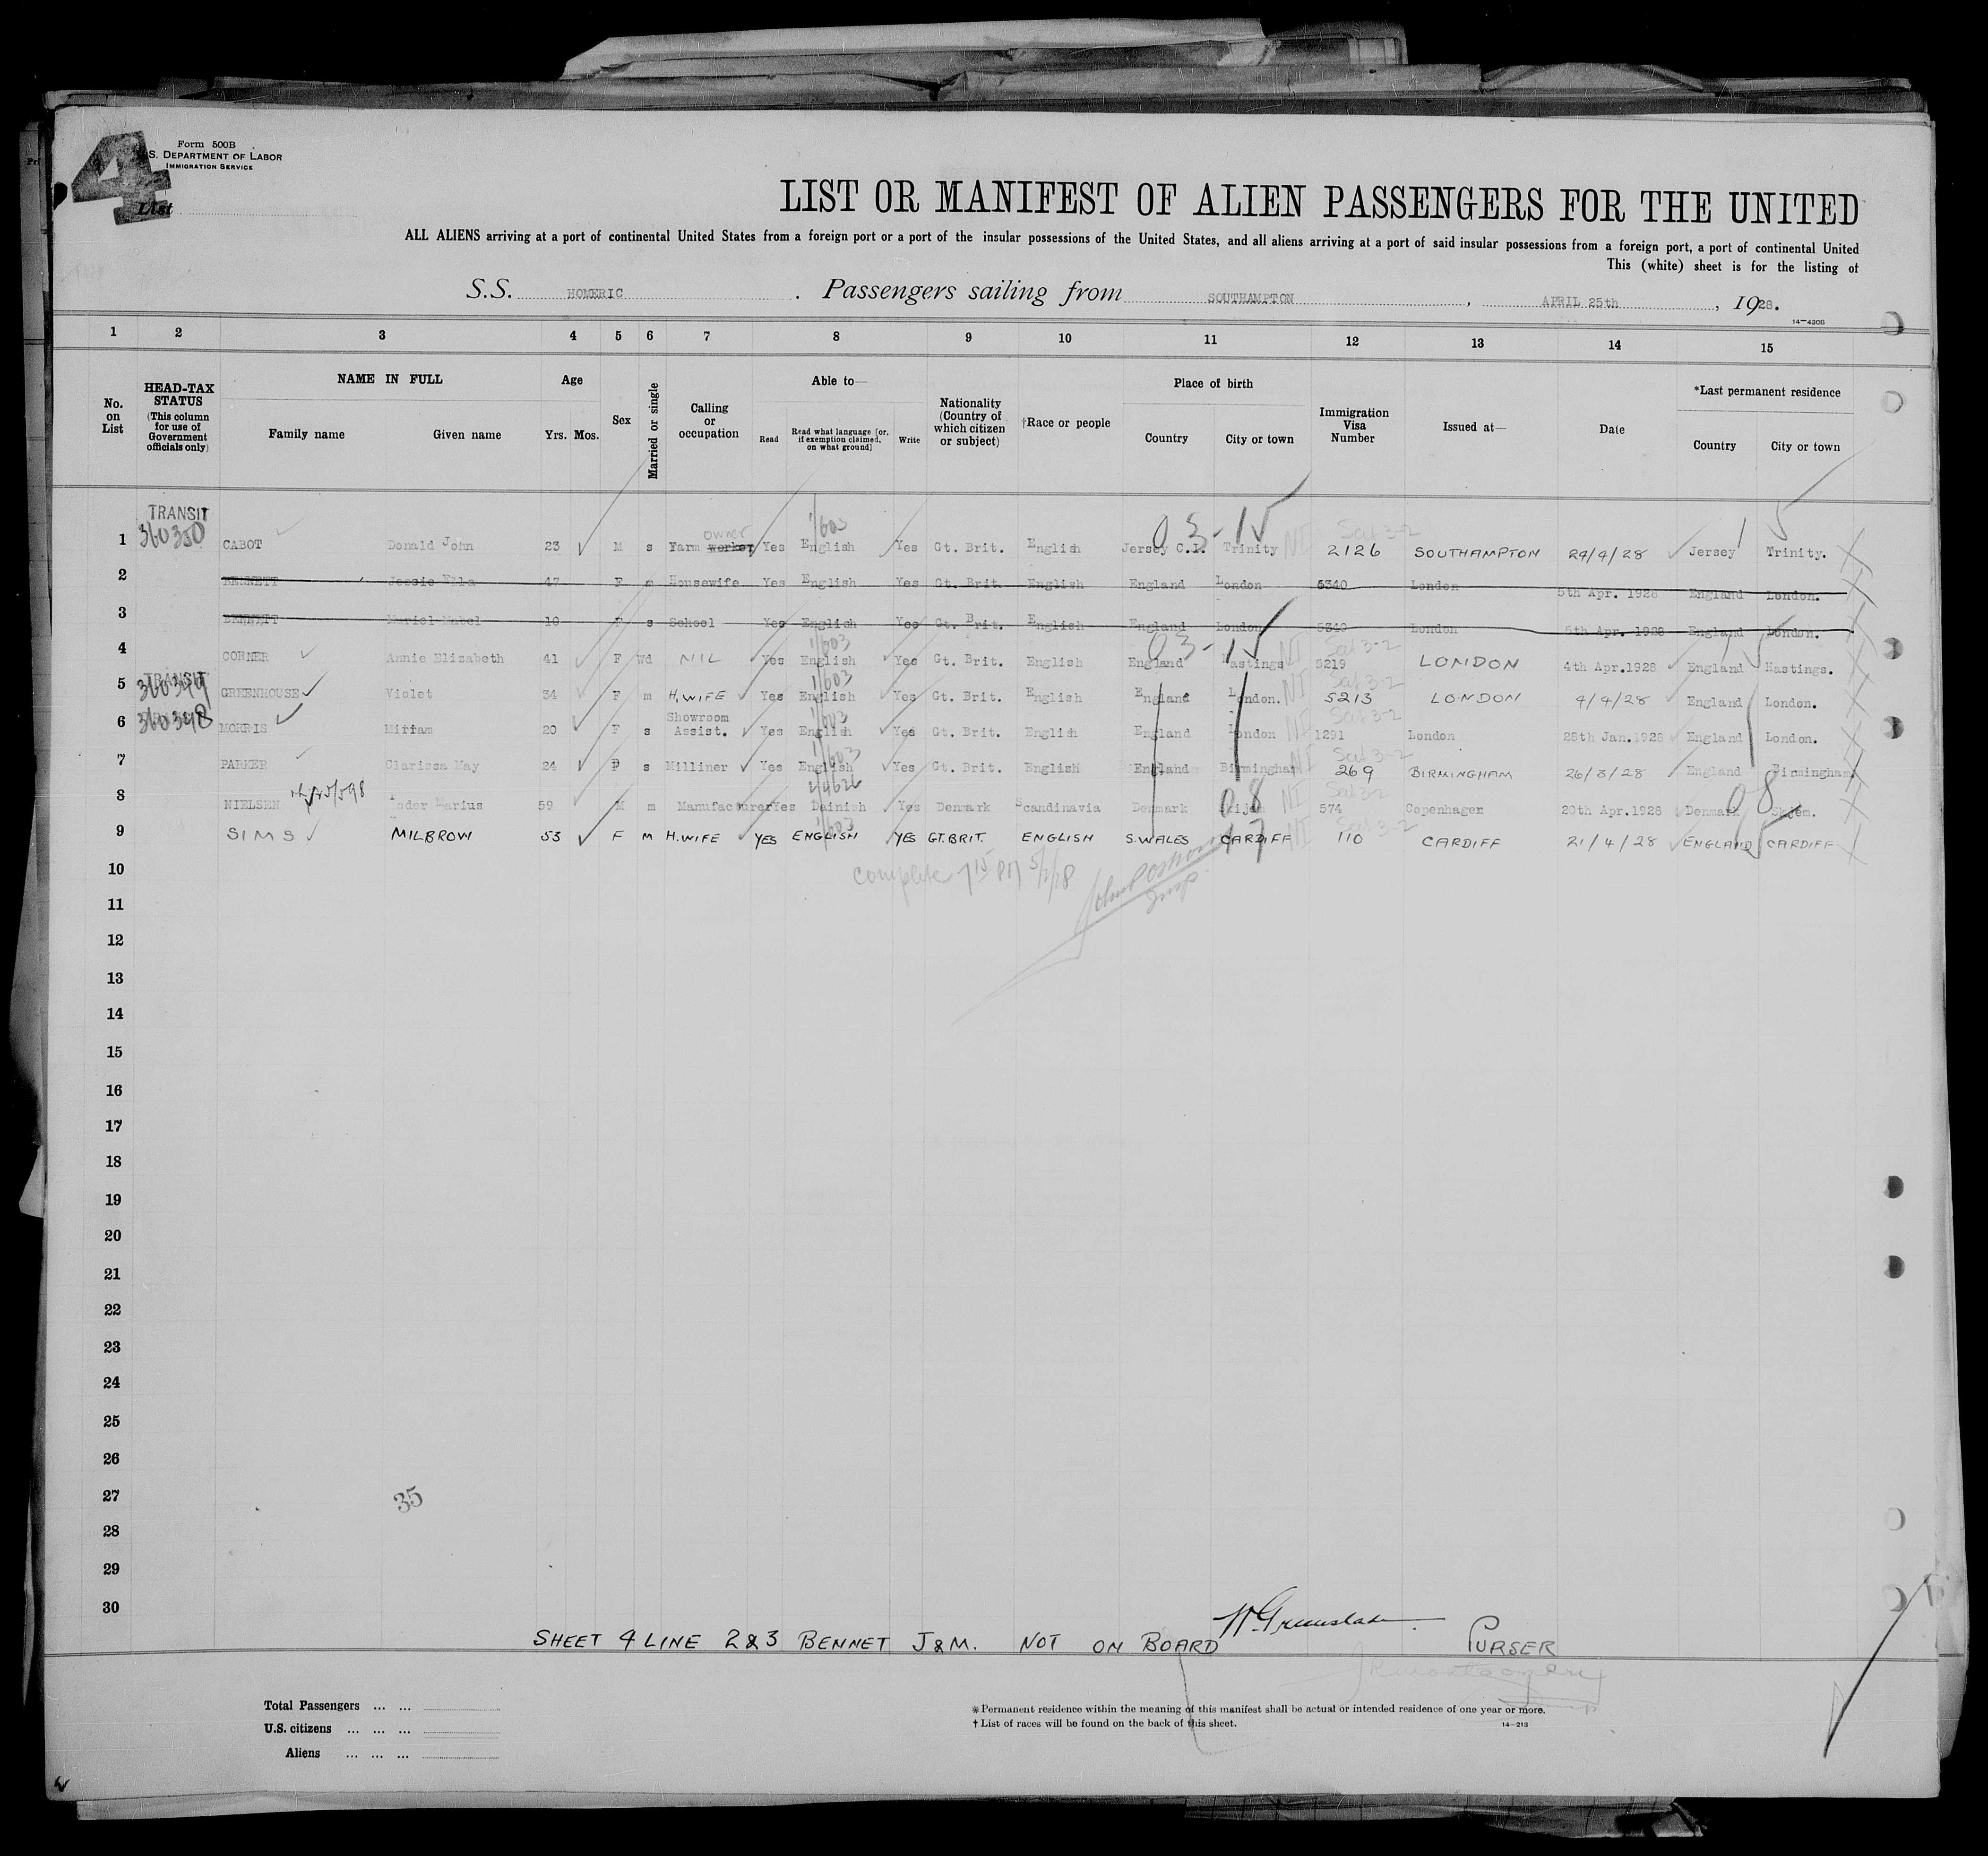 4
Form 500B
S. DEPARTMENT OF LABOR
IMMIGRATION SERVICE
List
LIST OR MANIFEST OF ALIEN PASSENGERS FOR THE UNITED
ALL ALIENS arriving at a port of continental United States from a foreign port or a port of the insular possessions of the United States, and all aliens arriving at a port of said insular possessions from a foreign port, a port of continental United
This (white) sheet is for the listing of
S.S. HOMERIC . Passengers sailing from SOUTHAMPTON , APRIL 25th , 1928.
14—430B
1 2 3 4 5 6 7 8 9 10 11 12 13 14 15
No. on List
HEAD-TAX STATUS (This column for use of Government officials only)
NAME IN FULL Family name Given name
Age Yrs. Mos.
Sex
Married or single
Calling or occupation
Able to— Read Read what language [or, if exemption claimed, on what ground] Write
Nationality (Country of which citizen or subject)
†Race or people
Place of birth Country City or town
Immigration Visa Number
Issued at—
Date
*Last permanent residence Country City or town
TRANSIT 1/603 03-15 Sec 3-2 15
1 360350 CABOT Donald John 23 M s Farm worker owner Yes English Yes Gt. Brit. English Jersey C.I. Trinity NI 2126 SOUTHAMPTON 24/4/28 Jersey Trinity.
2 BENNETT Jessie Ella 47 F m Housewife Yes English Yes Gt. Brit. English England London 5340 London 5th Apr. 1928 England London.
3 BENNETT Muriel Mabel 10 F s School Yes English Yes Gt. Brit. English England London 5340 London 5th Apr. 1928 England London.
1/603 03-15 Sec 3-2 15
4 CORNER Annie Elizabeth 41 F Wd NIL Yes English Yes Gt. Brit. English England Hastings NI 5219 LONDON 4th Apr.1928 England Hastings.
TRANSIT 1/603 Sec 3-2
5 360349 GREENHOUSE Violet 34 F m H.WIFE Yes English Yes Gt. Brit. English England London. NI 5213 LONDON 4/4/28 England London.
1/603 Sec 3-2
6 360348 MORRIS Miriam 20 F s Showroom Assist. Yes English Yes Gt. Brit. English England London NI 1291 London 28th Jan.1928 England London.
1/603 Sec 3-2
7 PARKER Clarissa May 24 F s Milliner Yes English Yes Gt. Brit. English England Birmingham NI 269 BIRMINGHAM 26/3/28 England Birmingham
08 Sec 3-2 08
8 NIELSEN Marius 59 M m Manufacturer Yes Dainish Yes Denmark Scandinavia Denmark Skijem NI 574 Copenhagen 20th Apr.1928 Denmark Skjem.
1/603 Sec 3-2
9 SIMS MILBROW 53 F m H.WIFE YES ENGLISH YES GT.BRIT. ENGLISH S.WALES CARDIFF NI 110 CARDIFF 21/4/28 ENGLAND CARDIFF
10 complete 7 15 PM 5/2/28
11
12
13
14
15
16
17
18
19
20
21
22
23
24
25
26
27 35
28
29
30
SHEET 4 LINE 2 & 3 BENNET J & M. NOT ON BOARD PURSER
Total Passengers ... ...
U.S. citizens ... ... ...
Aliens ... ... ...
* Permanent residence within the meaning of this manifest shall be actual or intended residence of one year or more.
† List of races will be found on the back of this sheet.
14—213